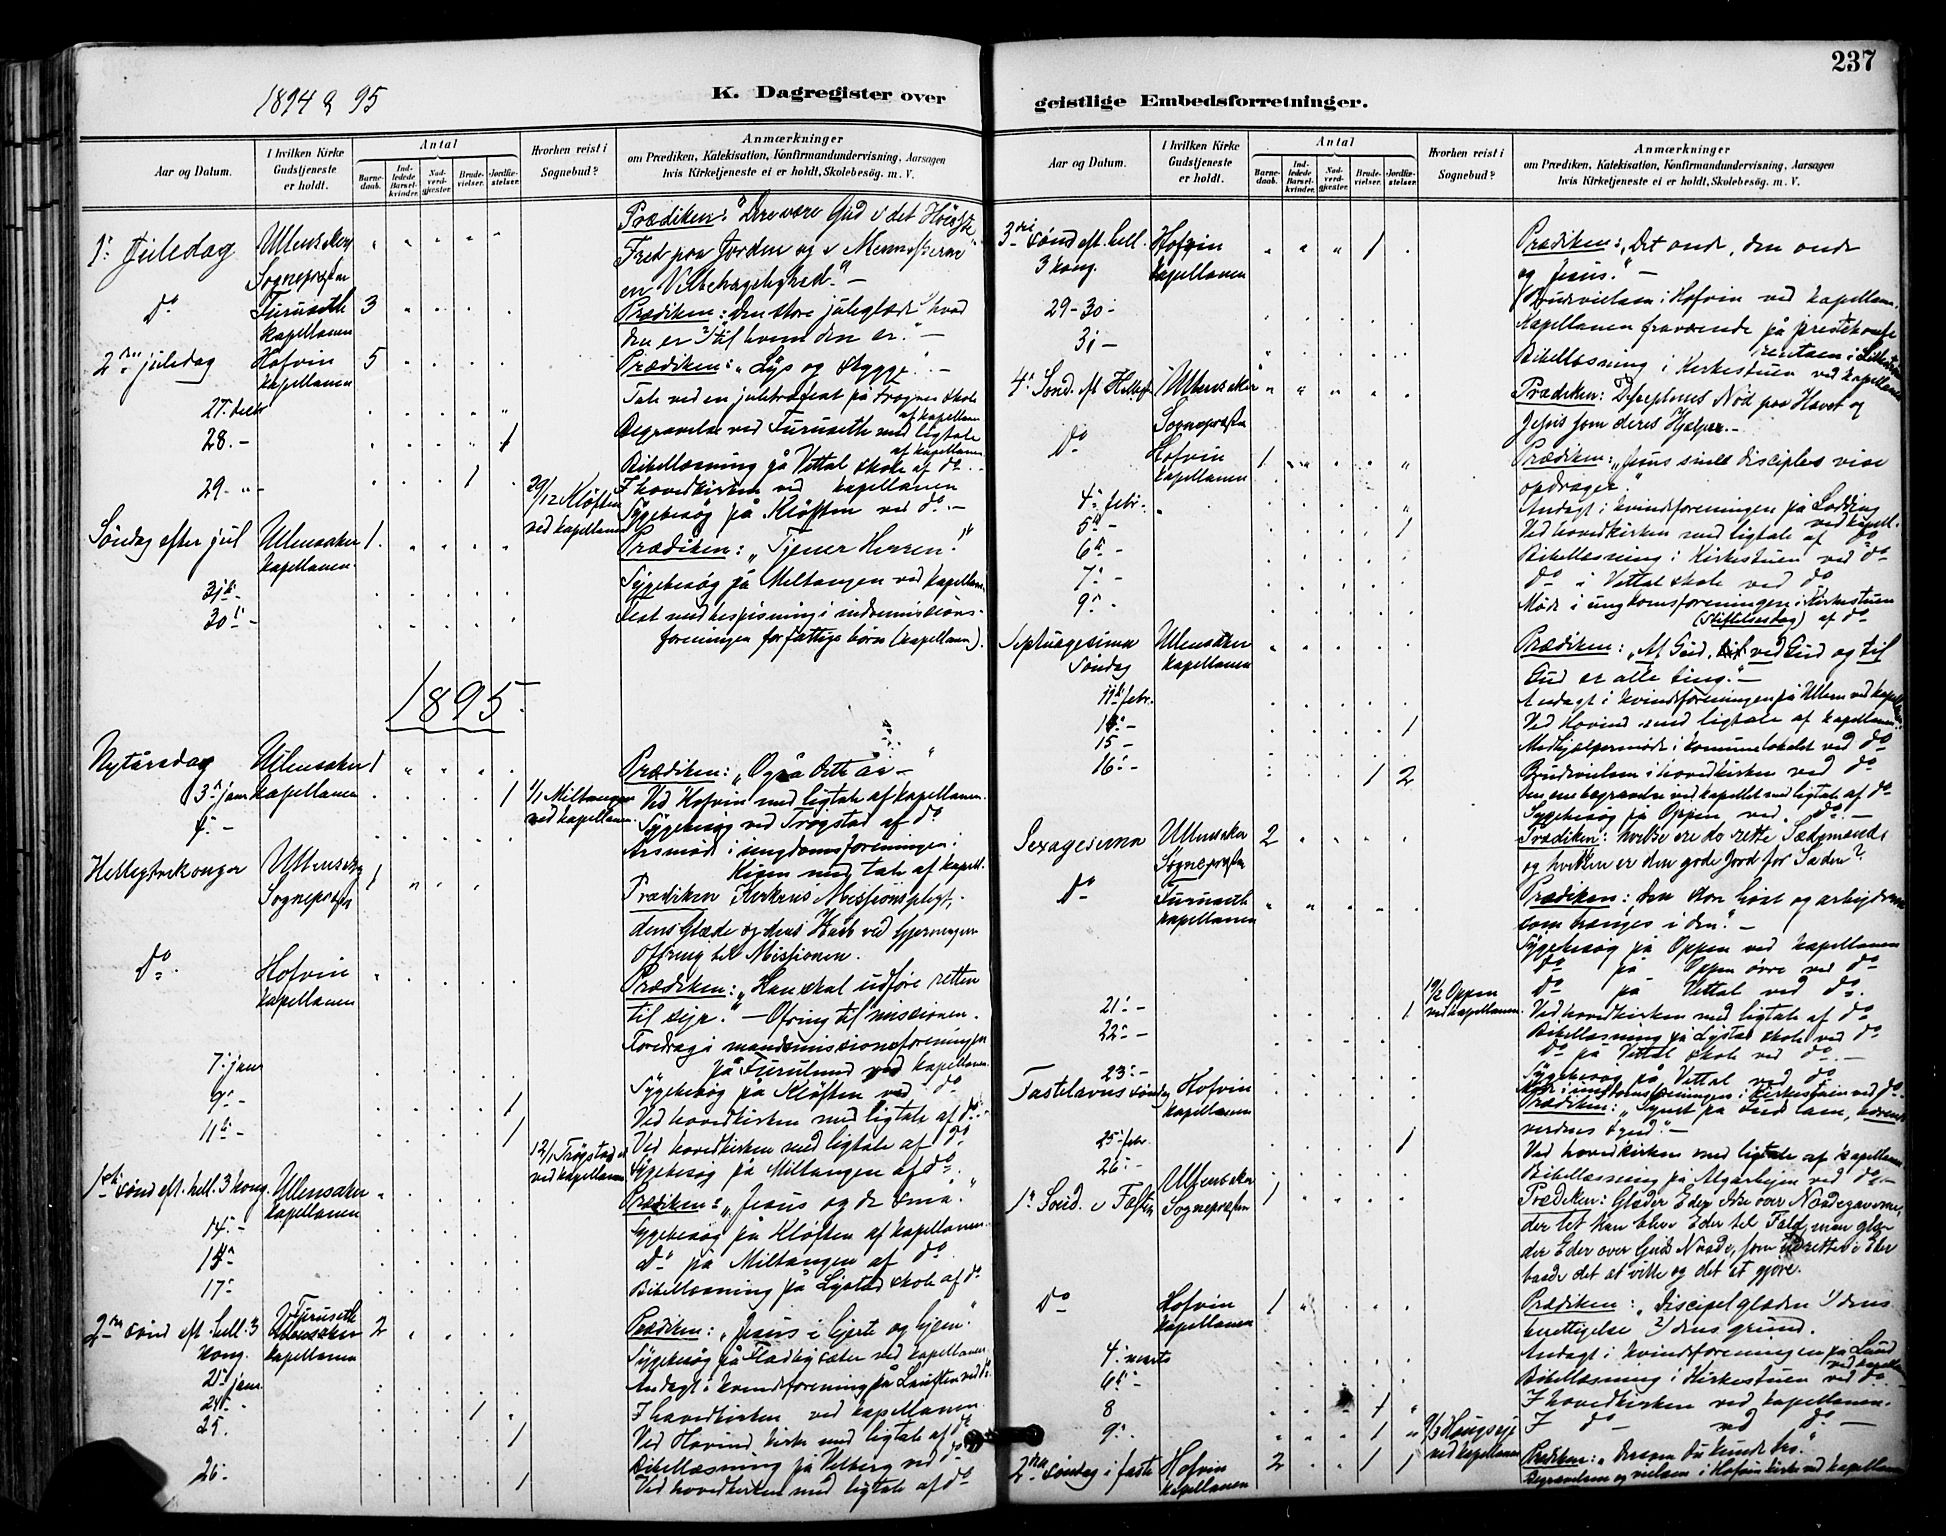 237
1894 & 95
K. Dagregister over
geistlige Embedsforretninger.
Aar og Datum.
I hvilken Kirke Gudstjeneste er holdt.
Antal
Barnedaab.
Indledede Barselkvinder.
Nadverdgjester.
Brudevielser.
Jordfæstelser.
Hvorhen reist i Sognebud?
Anmærkninger
om Prædiken, Katekisation, Konfirmandundervisning, Aarsagen
hvis Kirketjeneste ei er holdt, Skolebesøg. m. V.
Prædiken: "Ære være Gud i det Høieste
1ste Juledag Ullensaker Fred paa Jorden og i Menneskene
Sognepræsten en Velbehagelighed." —
Do Furuseth 3 Prædiken: Den store juleglæde 1/ hvad
kapellanen den er 2/ til hvem den er." —
2den juledag Hofvin 5 Prædiken: "Lys og skygge." —
kapellanen
27. decbr Tale ved en juletræfest på Frogner skole af kapellanen
28. — 1 Begravelse ved Furuseth med ligtale af kapellanen
Bibellæsning på Vettal skole af do
29. — 1 29/12 Kløften I hovedkirken ved kapellanen
ved kapellanen Sygebesøg på Kløften ved do —
Søndag efter jul Ullensaker 1 Prædiken: "Tjener Herren!"
kapellanen
31. — Sygebesøg på Miltangen ved kapellanen
30. — Fest med bespisning i indremissions-
foreningen for fattige børn (kapellanen).
1895.
Nytårsdag Ullensaker 1 Prædiken: "Også dette år —"
3. jan kapellanen 1 1/1 Miltangen Ved Hofvin med ligtale af kapellanen
4. — ved kapellanen. Sygebesøg ved Trøgstad af do
Årsmøde i ungdomsforeningen.
Helligtrekonger Ullensaker 1 med tale af kapell.
Sognepræsten Prædiken Kirkens Missionspligt,
dens Glæde og dens Haab ved Gjerningen
Ofring til Missionen.
Do Hofvin Prædiken: "Han skal udføre retten
kapellanen til sejr." — Ofring til missionen.
7. jan Foredrag i mandsmissionsforeningen
på Furulund ved kapellanen
9. — 1 Sygebesøg på Kløften ved do
Ved hovedkirken med ligtale af do
11. — 1 Ved hovedkirken med ligtale af do
12/1 Trøgstad ved kapellanen Sygebesøg på Miltangen af do
1ste sønd eft. hell. 3 kong. Ullensaker Prædiken: "Jesus og de små."
kapellanen
14. — Sygebesøg på Kløften af kapellanen
15. Do på Miltangen af do
17. Bibellæsning på Lystad skole af do
2den sønd eft. hell. 3 kong. Furuseth 2 Prædiken: "Jesus i hjerte og hjem."
kapellanen Sygebesøg på Fladbysæter ved kapellanen
21. jan Andagt i kvindeforening på ved do
24. 1 I hovedkirken ved kapellanen
25. 1 Ved Hovind kirke med ligtale af do
Bibellæsning på Velberg ved do
26. 1 Ved hovedkirken med ligtale af do
Aar og Datum.
I hvilken Kirke Gudstjeneste er holdt.
Antal
Barnedaab.
Indledede Barselkvinder.
Nadverdgjester.
Brudevielser.
Jordfæstelser.
Hvorhen reist i Sognebud?
Anmærkninger
om Prædiken, Katekisation, Konfirmandundervisning, Aarsagen
hvis Kirketjeneste ei er holdt, Skolebesøg m. V.
3die sønd eft. hell. 3 kong. Hofvin 1 Prædiken: "Det onde, den onde
kapellanen og Jesus." —
Brudevielsen i Hofvin ved kapellanen.
29-30 — Kapellanen fraværende på prestekonfe
31 — Bibellæsning i Kirkestuen ved kapellanen
4. Sønd. eft. Hellig Ullensaker Prædiken: Disciplenes Nød paa Havet og
Sognepræsten Jesus som deres Hjælper. —
Do Hofvin 1 Prædiken: "Jesus sine disciples vise
kapellanen opdrager."
4. febr. Andagt i kvindeforeningen på Lodding ved kapell.
5. — 1 Ved hovedkirken med ligtale af do
6. — Bibellæsning i Kirkestuen ved do
7. — do i Vettal skole ved do
9. — Møde i ungdomsforeningen i Kirkestuen
(Stiftelsesdag) af do
Septuagesima Søndag Ullensaker Prædiken: "Af Gud, ved Gud og til
kapellanen Gud er alle ting." —
11. febr. Andagt i kvindeforeningen på ved kapellanen
14. — 1 Ved Hovind med ligtale af kapellanen
15 — Medhjælpermøde i kommunelokalet ved do
16. — 1 2 Brudevielsen i hovedkirken ved do
Den ene begravelse ved kapellet med ligtale af do
Sygebesøg på Oppen ved do —
Sexagesima Ullensaker 2 Prædiken: hvilke ere de rette Sædemænd
Sognepræsten og hvilken er den gode Jord for Sæden?
Do Furuseth Prædiken: Den store høst og arbejderne
kapellanen som trænges i den." —
Sygebesøg på Oppen ved kapellanen
do på Oppen øvre ved do
19/2 Oppen ved kapellanen. do på Vettal ved do
21. — 1 Ved hovedkirken med ligtale af do
22. — Bibellæsning på Lystad skole ved do
do på Vettal skole ved do —
23. — Sygebesøg på Vettal ved do
Møde i ungdomsforeningen i Kirkestuen ved do
Fastelavns søndag Hofvin Prædiken: "Synet på Guds lam, som
kapellanen verdens synd." —
25. febr. 1 Ved hovedkirken med ligtale af kapellanen
26. — Bibellæsning på Algarhejm ved do —
1. Sønd. i Fasten Ullensaker 1 Prædiken: Glæder Eder ikke over Naadegaverne,
Sognepræsten der let kan blive Eder til Fald, men glæ-
der Eder over Guds Naade, som udretter i Eder
baade det at ville og det at gjøre.
Do Hofvin 1 Prædiken: "Discipelglæden 1/ dens
kapellanen berettigelse 2/ dens grund.
4. marts Andagt i kvindeforeningen på Lund ved kapellanen
6. — Bibellæsning i Kirkestuen ved do
8 1 I hovedkirken ved kapellanen.
9. — 1 9/3 Haugseje ved kapellanen I do ved do —
2den søndag i faste Hofvin 2 1 1 Prædiken: "Dersom du kunde tro."
kapellanen Begravelsen og vielsen i Hofvin kirke ved kapellanen